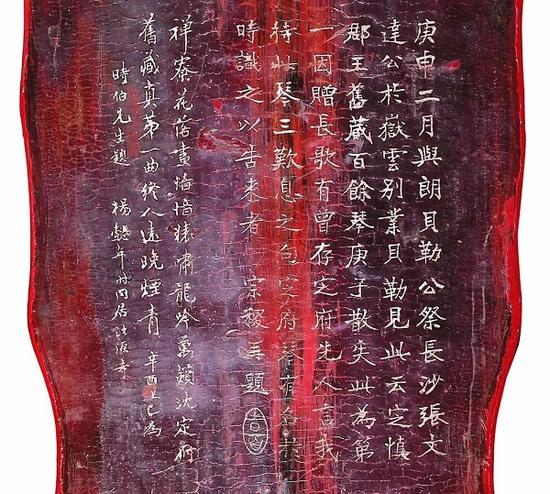 庚申二月與朗貝勒公祭長沙張文
達公於嶽雲別業貝勒見此云定慎
郡王舊蔵百餘琴庚子散失此為第
一因贈長歌有曾存定府先人言我
待此琴三歎息之句定府琴有名於
時識之以告来者 宗稷再題
禅寮花落晝愔愔猿嘯龍吟萬籟沈定府
舊藏真第一曲終人遠晚煙青 辛酉上巳為
時伯先生題 楊懿年時同居法源寺